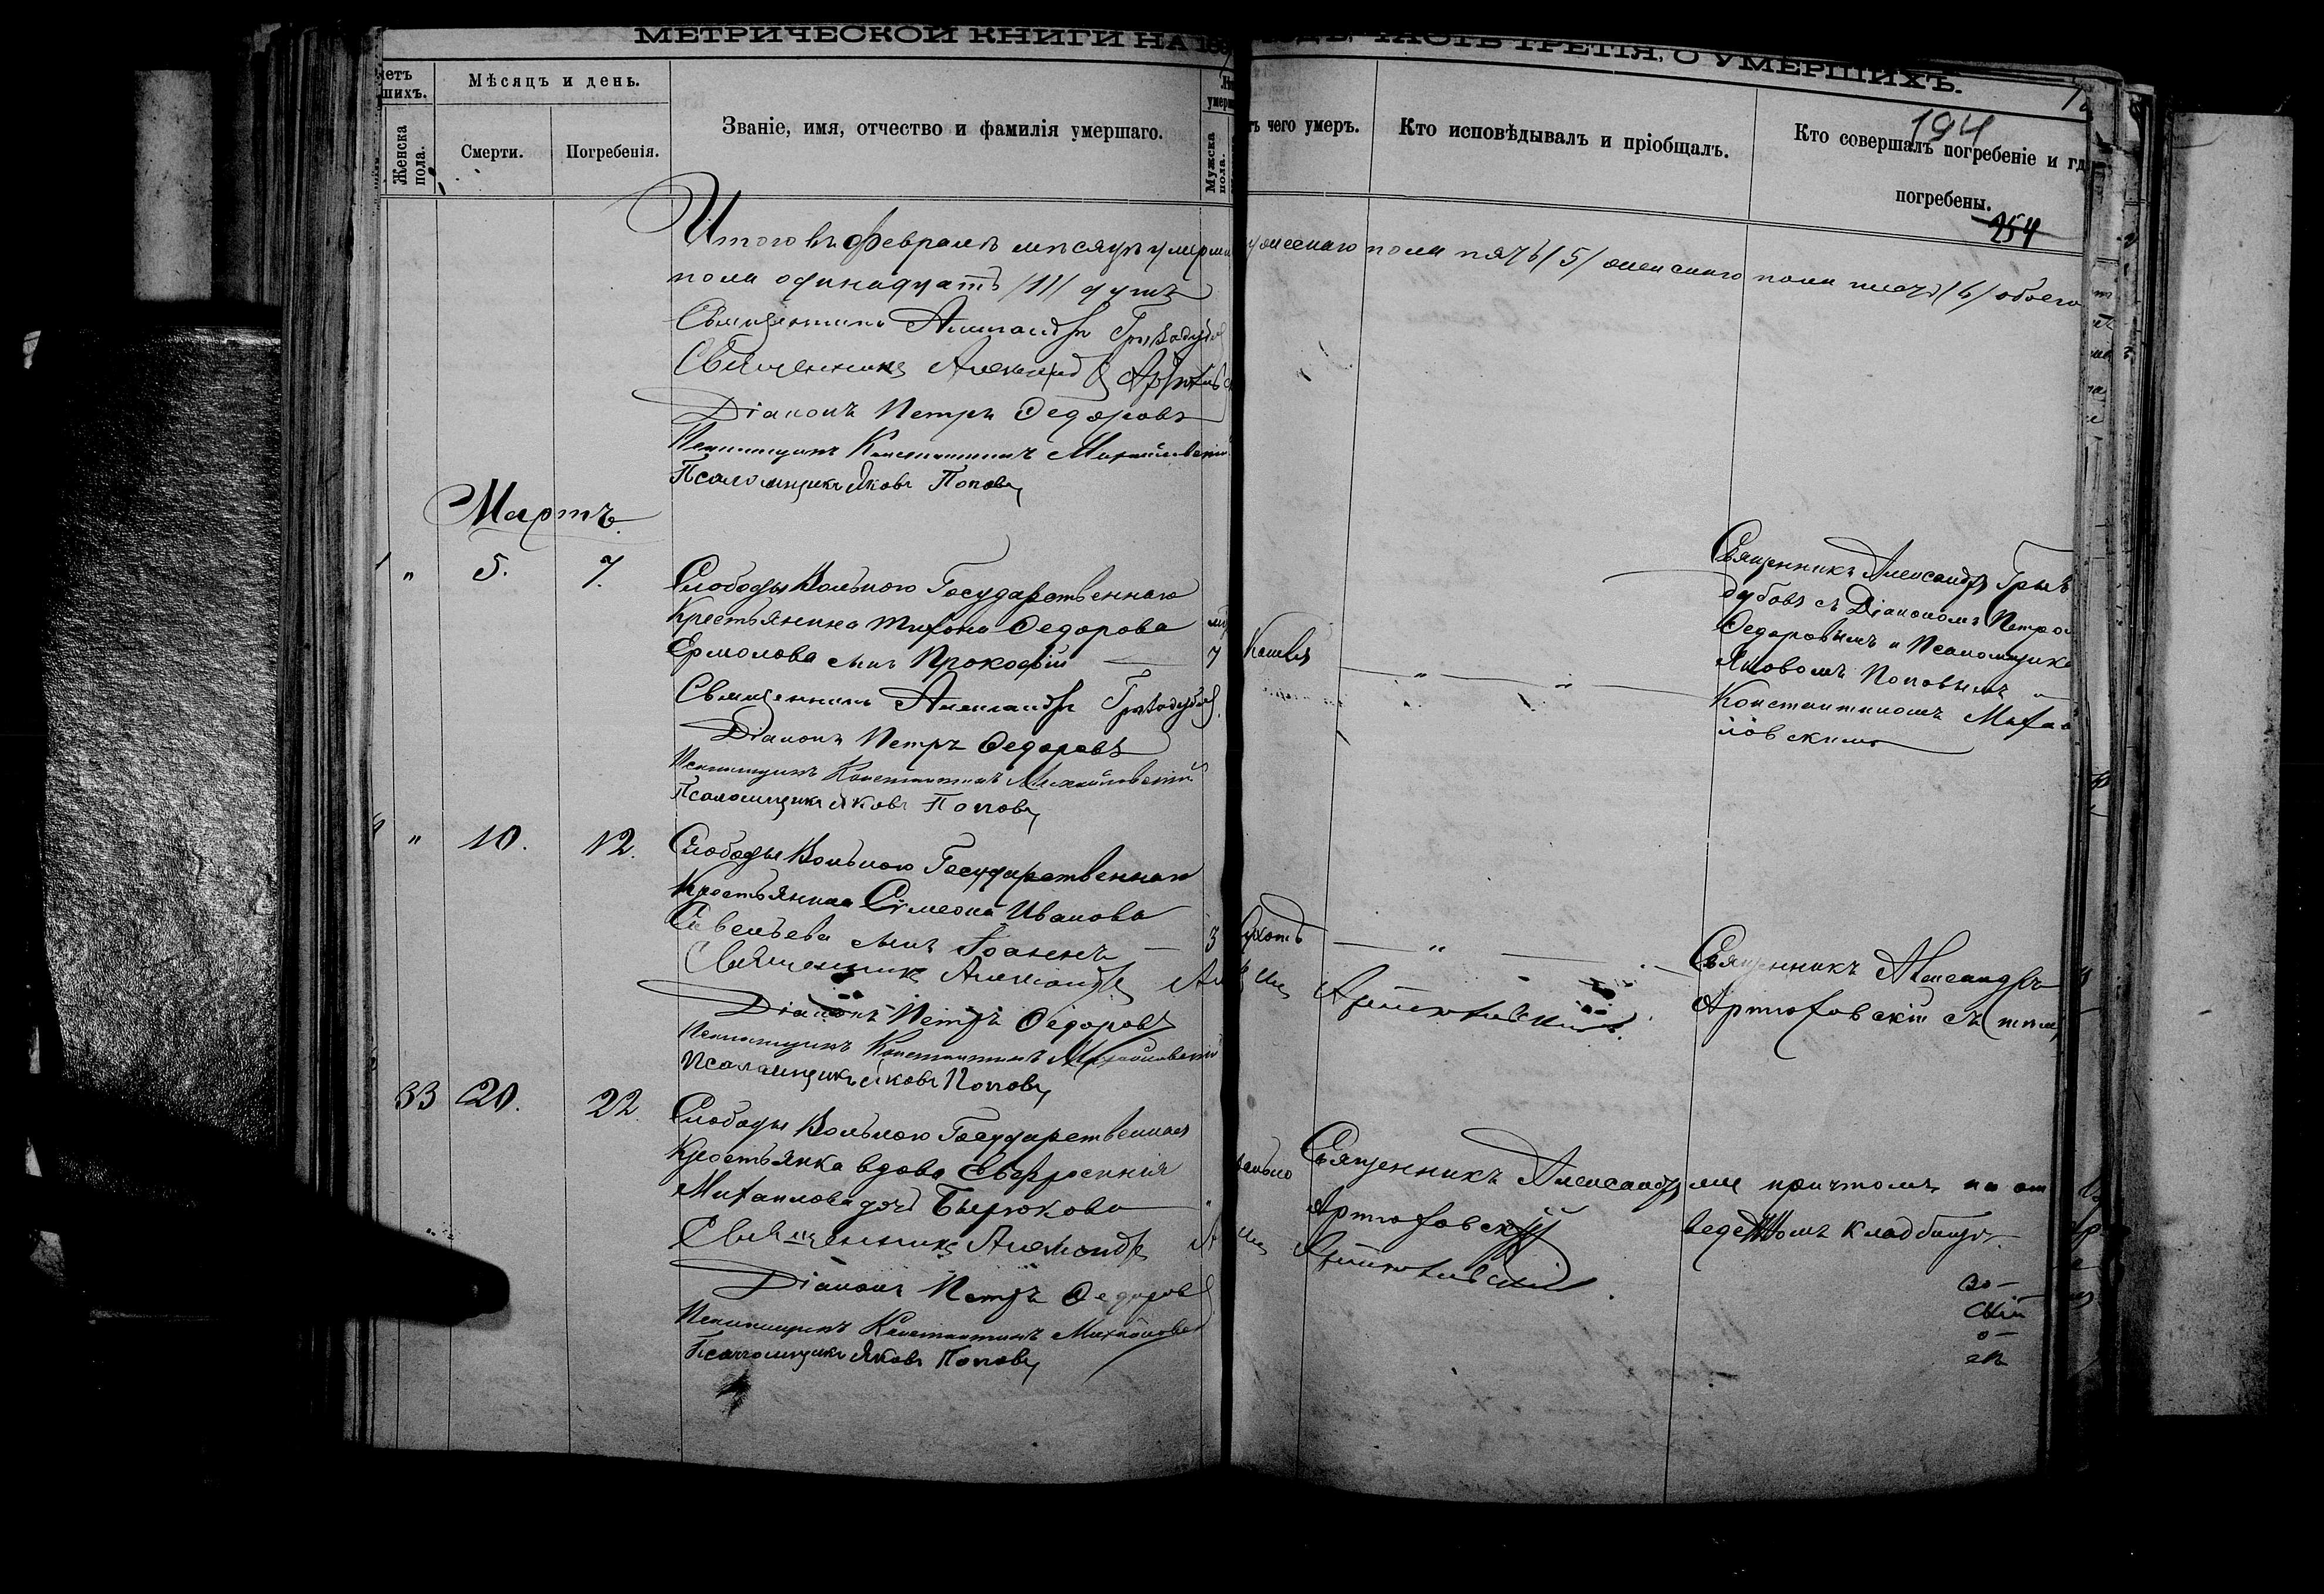 МЕТРИЧЕСКОЙ КНИГИ НА 18
ЧАСТЬ ТРЕТІЯ, О УМЕРШИХЪ.
Мѣсяцъ и день.
Женска пола.
Смерти.
Погребенія.
Званіе, имя, отчество и фамилія умершаго.
Мужска пола.
чего умеръ.
Кто исповѣдывалъ и пріобщалъ.
Кто совершалъ погребеніе и гд
погребены.
194
254
Итого въ Февралѣ мѣсяцѣ умерш ужескаго пола пять (5) женскаго пола шесть (6) обоего
пола одинадцать (11) душъ
Священникъ Александръ
Священникъ Александръ
Діаконъ Петръ Ѳедоровъ
Псаломщикъ Константинъ Михайловскій
Псаломщикъ Яковъ Поповъ
Мартъ.
" 5. 7.
Слободы Вольного Государственнаго
Крестьянина Тихона Ѳедорова
Ермолова сынъ Прокофій — 7
Кашля
" "
Священникъ Александръ
Діаконъ Петръ Ѳедоровъ
Псаломщикъ Константинъ Михайловскій
Псаломщикъ Яковъ Поповъ
Священникъ Александръ Грыз
дубовъ съ Діакономъ Петро
Ѳедоровымъ и Псаломщика
Яковомъ Поповымъ и
Константиномъ Михай
ловскимъ
" 10. 12.
Слободы Вольного Государственнаго
Крестьянина Симеона Иванова
Савельева сынъ Іоаннъ — 3
"
Священникъ Александръ
Діаконъ Петръ Ѳедоровъ
Псаломщикъ Константинъ Михайловскій
Псаломщикъ Яковъ Поповъ
Священникъ Александръ
Артюховскій съ тѣм
33 20. 22
Слободы Вольного Государственная
Крестьянка вдова Евфросинія
Михаилова дочь Бирюкова "
Священникъ Александръ
Артюховскій
Священникъ Александръ
Діаконъ Петръ Ѳедоровъ
Псаломщикъ Константинъ Михайловск
Псаломщикъ Яковъ Поповъ
же причтомъ на от
веденомъ кладбищѣ.